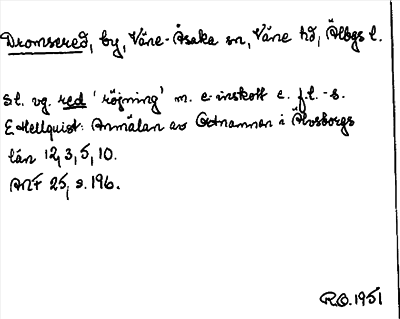 Dromsered, by, Väne-Åsaka sn, Väne hd, Älvbgs l.
Sl. vg. red 'röjning' m. e-inskott e. f.l. -s.
E Hellquist: Anmälan av Ortnamnen i Älvsborgs
län 12, 3, 5, 10.
ANF 25, s. 196.
R.O. 1951